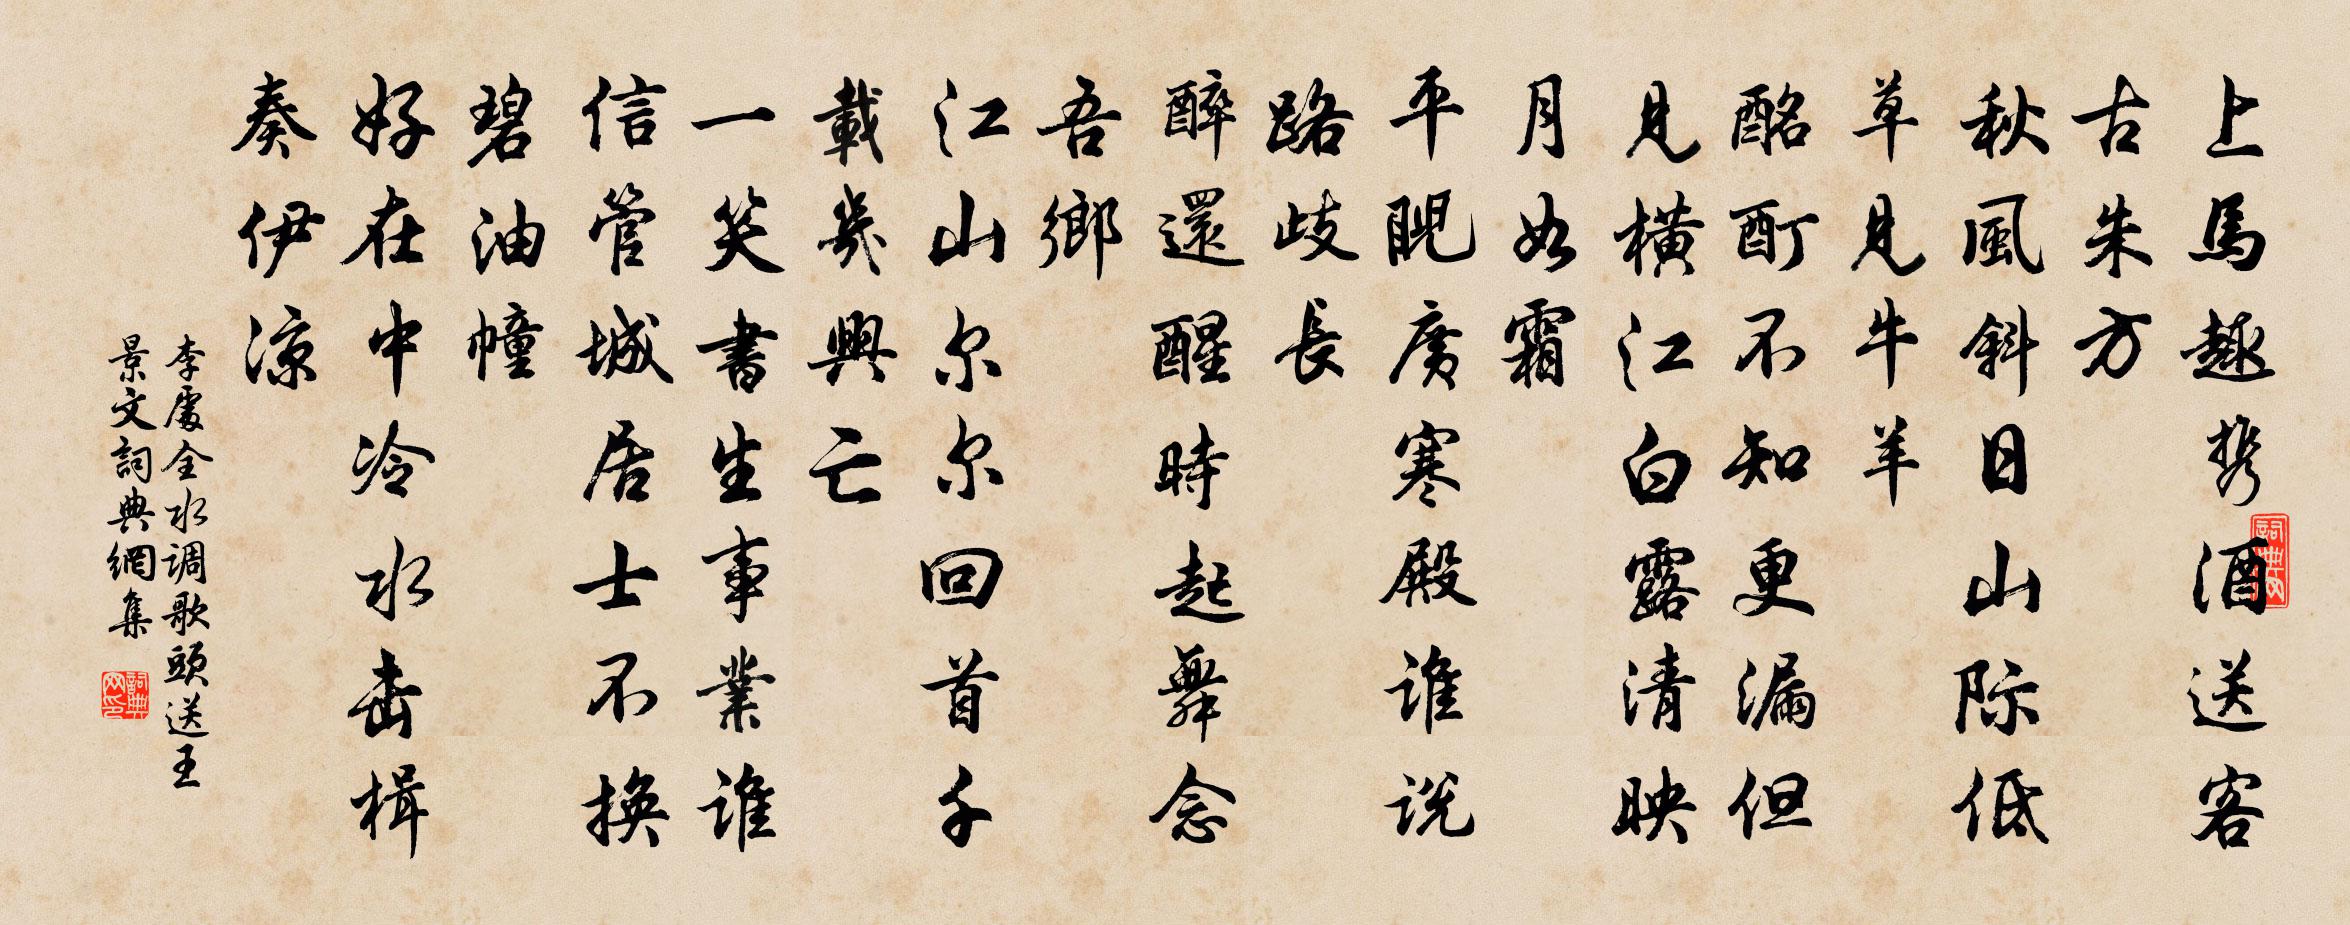 上馬趣携酒送客
古朱方
秋風斜日山际低
草見牛羊
酩酊不知更漏但
見橫江白露清映
月如霜
平睨广寒殿谁说
路歧長
醉還醒時起舞念
吾鄉
江山尔尔回首千
載幾興亡
一笑書生事業谁
信管城居士不換
碧油幢
好在中冷水击楫
奏伊凉
李處全水调歌頭送王
景文詞典網集
詞典网
詞典网印